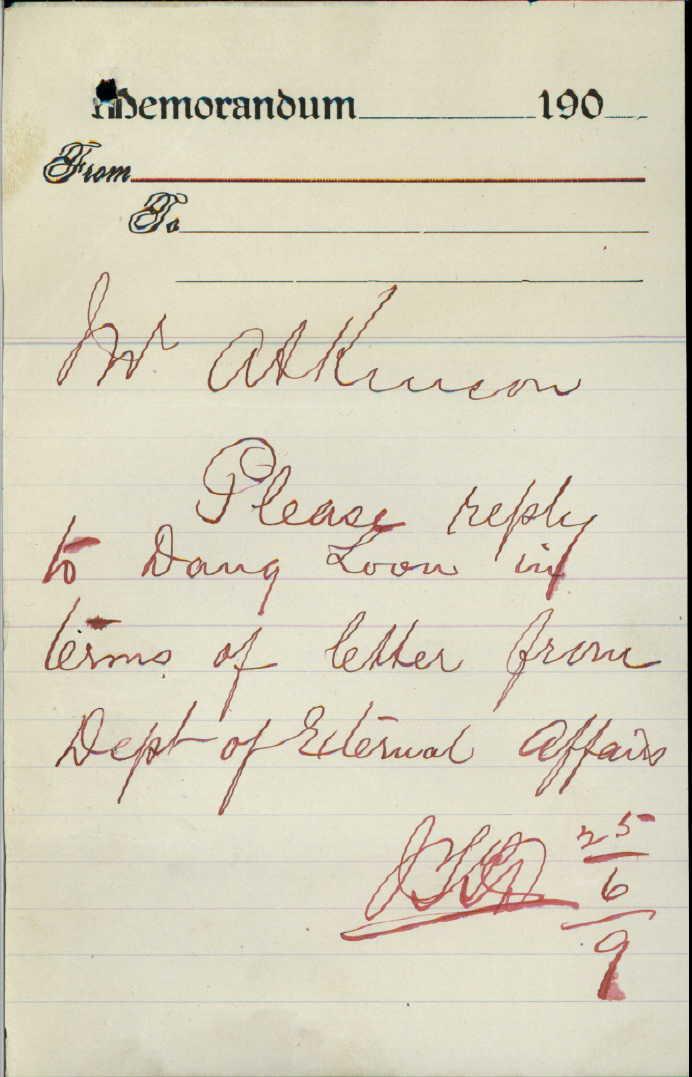 Memorandum 190
From
To
Mr Atkinson
Please reply
to Dang Loon in
terms of letter from
Dept of External Affairs
25
6
9